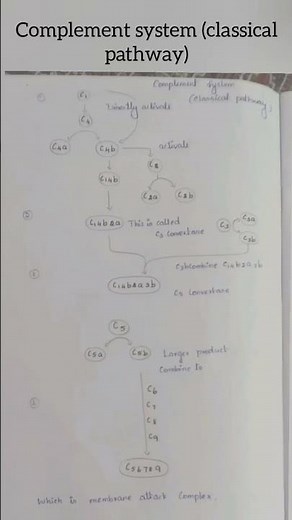 Complement system (classical
pathway)
Complement System
(Classical pathway)
①
C1
Directly activate
C4
C4a
C4b
activate
C2
C14b
C2a
C2b
②
C14b2a
This is called
C3 convertase
C3
C3a
C3b
C3b combine C14b2a3b
C14b2a3b
C5 convertase
C5
C5a
C5b
Larger product
Combine to
C6
C7
C8
C9
C5b789
Which is membrane attack Complex.